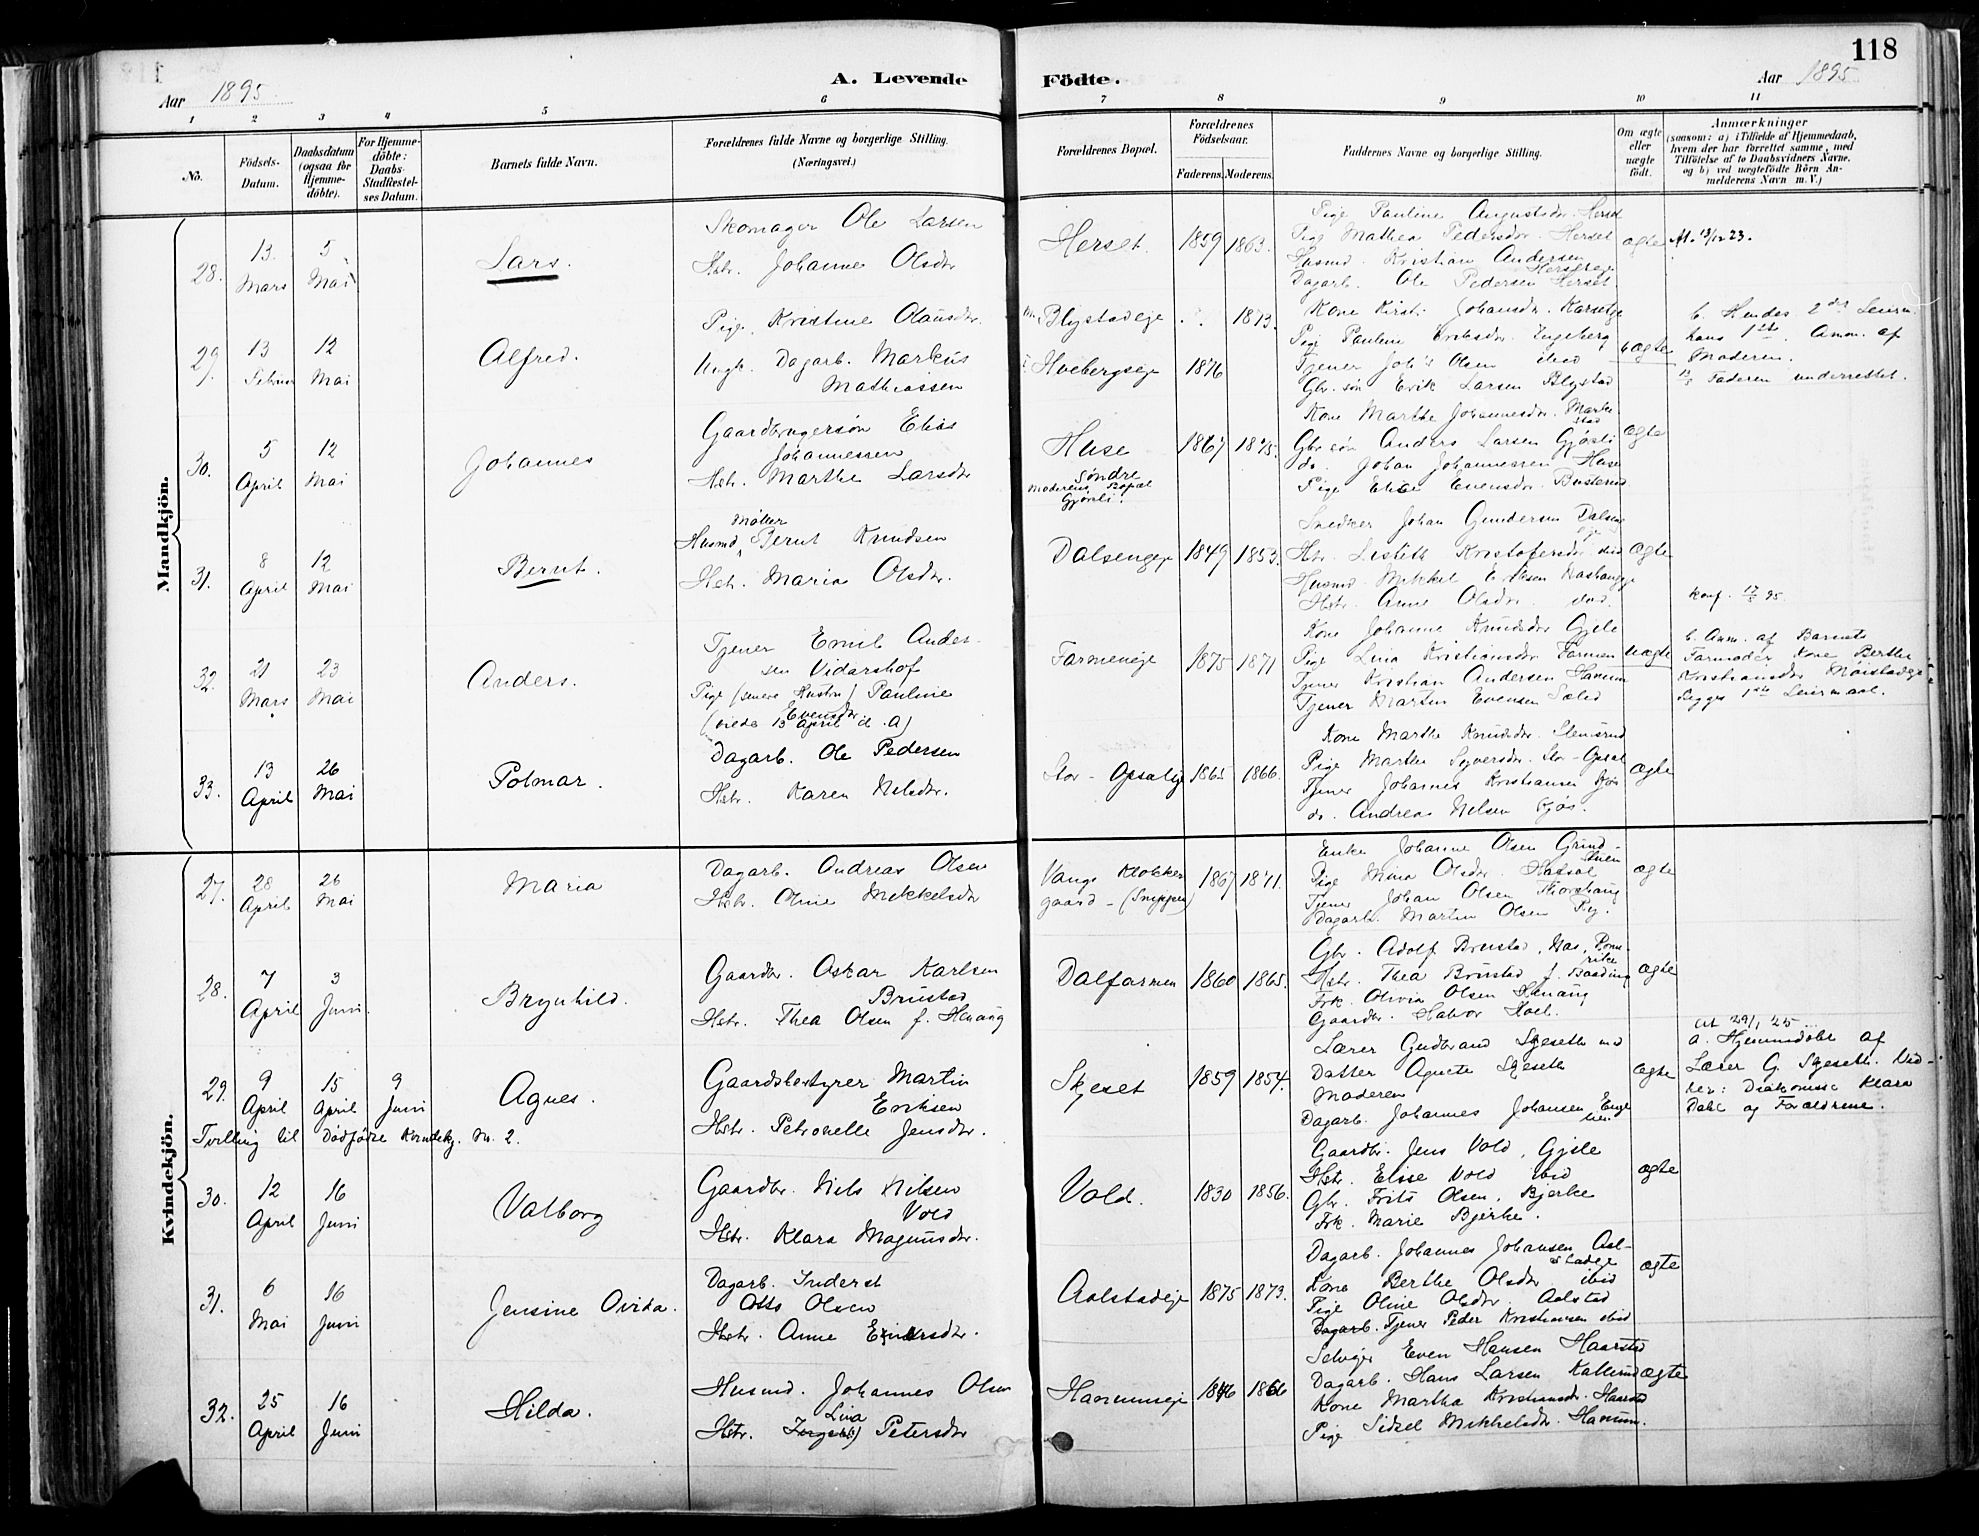 118
Aar 1895
A. Levende Födte.
Aar 1895
1 2 3 4 5 6 7 8 9 10 11
No.
Födsels-Datum.
Daabsdatum (ogsaa for Hjemmedöbte).
For Hjemmedöbte: Daabs-Stadfæstelses Datum.
Barnets fulde Navn.
Forældrenes fulde Navne og borgerlige Stilling.
(Næringsvei.)
Forældrenes Bopæl.
Forældrenes Födselsaar.
Faderens. Moderens.
Faddernes Navne og borgerlige Stilling.
Om ægte eller uægte födt.
Anmærkninger
(saasom: a) i Tilfælde af Hjemmedaab,
hvem der har forrettet samme, med
Tilföielse af to Daabsvidners Navne,
og b) ved uægtefödte Börn An-
melderens Navn m. V.)
Mandkjön.
28. 13 Mars 5 Mai Lars.
Skomager Ole Larsen
Hstr. Johanne Olsdtr
Herset. 1859 1863.
Pige Pauline Augustsdtr. Herset
Pige Mathea Pedersdtr. Herset
Husmd. Kristian Andersen
Dagarb. Ole Pedersen Herset
ægte
At. 13/12 23.
29. 13 12 Mai Alfred.
Pige Kristine Olausdtr.
Ungk. Dagarb. Markus
Mathiassen
Blystadeje 1873.
Hvebergseje 1876
Kone Kirsti Johansdr.
Pige Pauline
Tjener Johs Olsen ibid
Gbr. søn Erik Larsen Blystad
uægte
b. Hendes 2det Leierm.
hans 1ste. Anm. af
Moderen.
Faderen underrettet.
30. 5 April 12 Mai Johannes
Gaardbrugersön Elias
Johannessen
Hstr. Marthe Larsdtr
Huse
Søndre
Moderens Bopæl
Gjørsli.
1867 1875.
Kone Marthe Johannesdtr.
Gbr søn Anders Larsen Gjøsli
do. Johan Johannessen Huse
Pige Elise Evensdtr.
ægte
31. 8 April 12 Mai Bernt.
Møller
Husmd. Bernt Knudsen
Hstr. Maria Olsdtr.
Dalsengeje 1849 1853.
Snedker Johan Gundersen Dalsen-
eje
Hstr. Lisbeth Kristofersdtr ibid
Husmd. Mikkel
Hstr. Anne Olsdtr. ibid.
ægte
32. 21 Mars 23 Mai Anders.
Tjener Emil Ander-
sen Vidarshof
Pige (senere Hustru) Pauline
Evensdtr
(viede 15 April d. A)
Farmeneje 1875 1871
Kone Johanne Knudsdtr
Pige Lina Kristiansdtr Farmen
Tjener Kristian Andersen Hanum
Tjener Martin Evensen
uægte
Konf.
b. Anm. af Barnets
Farmoder Kone Berthe
Kristiansdtr
Begges 1ste Leiermaal.
33. 13 April 26 Mai Polmar.
Dagarb. Ole Pedersen
Hstr. Karen Nilsdtr.
Stor-Opsaleje 1865 1866.
Kone Marthe Knudsdtr. Stensrud
Pige Marthe Syversdtr. Stor-Opsal
Tjener Johannes Kristiansen Kjos
do. Andreas Nilsen Kjos.
ægte
Kvindekjön.
27. 28 April 26 Mai Maria
Dagarb. Andreas Olsen
Hstr. Oline Mikkelsdtr
Vangs Klokker-
gaard - (Snippen)
1867 1871.
Enke Johanne Olsen Grind-
stuen
Pige Mina Olsdtr.
Tjener Johan Olsen
Dagarb. Martin Olsen
ægte
28. 7 April 3 Juni. Brynhild.
Gaardbr. Oskar Karlsen
Brustad
Hstr. Thea Olsen f. Henaug
Dalfarmen 1860 1865.
Gbr. Adolf Brustad, Nas, Rome-
rike
Hstr. Thea Brustad f.
Frk. Olivia Olsen Henaug
Gaardbr. Halvor Hoel.
ægte
29. 9 April 15 April 9 Juni Agnes.
Tvilling til Dødfødte Kvindekj. No. 2.
Gaardsbestyrer Martin
Eriksen
Hstr. Petronelle Jensdtr.
Skjeset 1859 1854.
Lærer Gudbrand Skjeseth med
Datter Agnete Skjeseth
Moderen
Dagarb. Johannes Johansen
ægte
At 29/1 25
a. Hjemmedøbt af
Lærer G. Skjeseth. Vid-
ner: Diakonisse Klara
Dahl og Forældrene.
30. 12 April 16 Juni Valborg
Gaardbr. Nils Nilsen
Vold
Hstr. Klara Magnusdtr.
Vold. 1830 1856.
Gaardbr. Jens Vold, Gjile
Hstr. Elise Vold ibid
Gbr. Frits Olsen, Bjerke
Frk. Marie Bjerke.
ægte
31. 6 Mai 16 Juni Jensine Ovida.
Dagarb. Inderst
Otto Olsen
Hstr. Anne Einarsdtr.
Aalstadeje 1875 1873.
Dagarb. Johannes Johansen Aal-
stadeje
Kone Berthe Olsdtr. ibid
Pige Oline Olsdtr. Aalstad
Dagarb. Tjener Peder Kristiansen ibid
ægte
32. 25 April 16 Juni Hilda.
Husmd. Johannes Olsen
Lina
Hstr. Petersdtr
Hanumseje 1846 1866
Selvejer Even Hansen Haarstad
Dagarb. Hans Larsen
Kone Martha Kristiansdtr. Haarstad
Pige Sidsel Mikkelsdtr. Hanum.
ægte